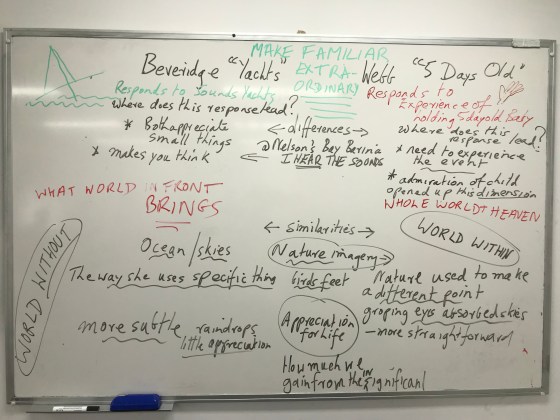 MAKE FAMILIAR
EXTRA-
ORDINARY
Beveridge "Yachts"
Webb "5 Days Old"
Responds to Sounds Yachts
where does this response lead?
* Both appreciate
small things
* makes you think
<-differences->
@ Nelson's Bay
I HEAR THE SOUNDS
Responds to
Experience of
holding 5 day old Baby
where does this
response lead?
* need to experience
the event
* admiration of child
opened up this dimension
WHOLE WORLD HEAVEN
WHAT WORLD IN FRONT
BRINGS
WORLD WITHOUT
<- similarities ->
WORLD WITHIN
Ocean/skies
Nature imagery
The way she uses specific thing
birds feet
Nature used to make
a different point
groping eyes absorbed skies
- more straightforward
more subtle
raindrops
little appreciation
Appreciation
for life
How much we
gain from the insignificant